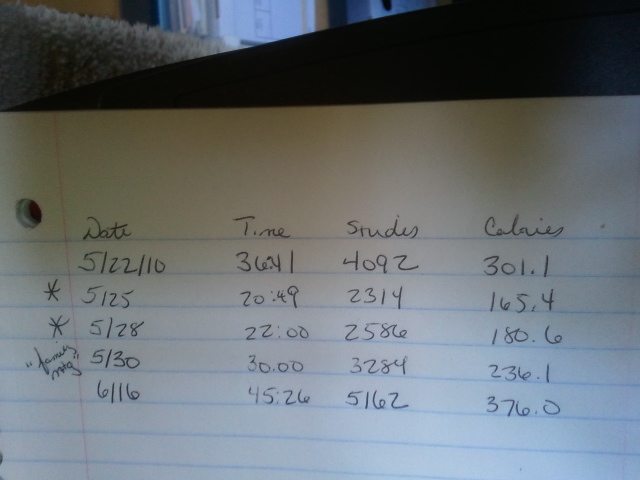 Date Time Strides Calories
5/22/10 36:41 4092 301.1
* 5/25 20:49 2314 165.4
* 5/28 22:00 2586 180.6
"family 5/30 30.00 3284 236.1
6/16 45:26 5162 376.0